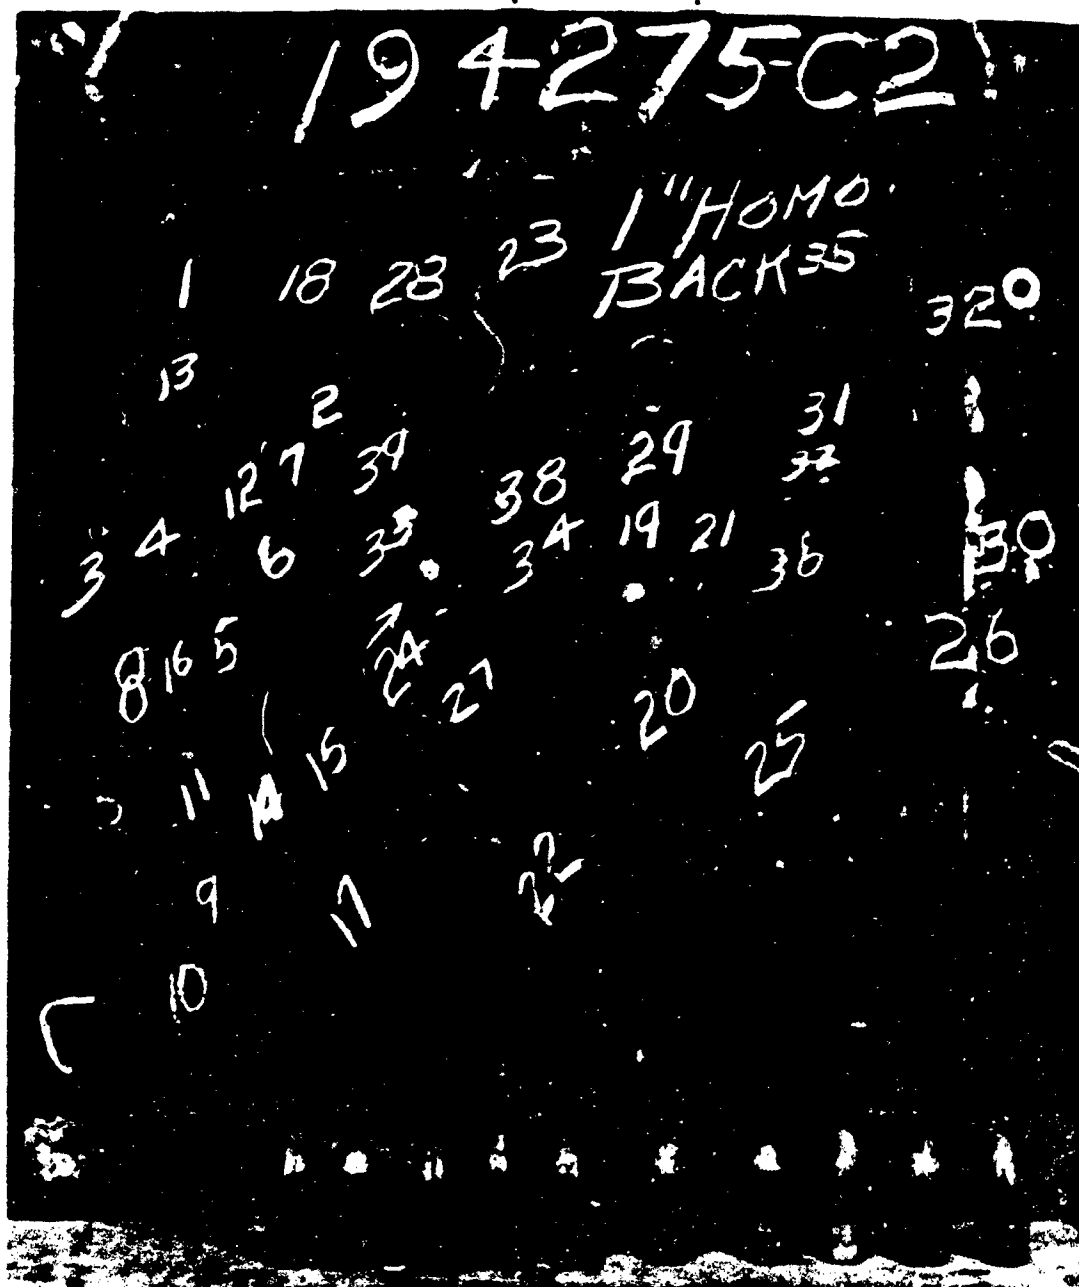 194275-C2
1" HOMO.
BACK 35
23
1 18 28
32
13
2
31
12 7 39
29
38
3 4 6 33
34 19 21 36
30
8 16 5
24 27
26
20
25
11 14 15
22
9 17
10